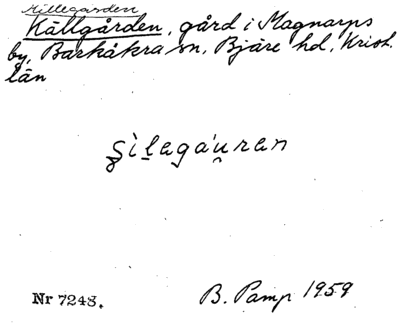 Killegården
Källgården, gård i Magnarps
by, Barkåkra sn, Bjäre hd, Krist.
län
ʂìlagáu̯ran
Nr 7248.
B. Pamp 1959